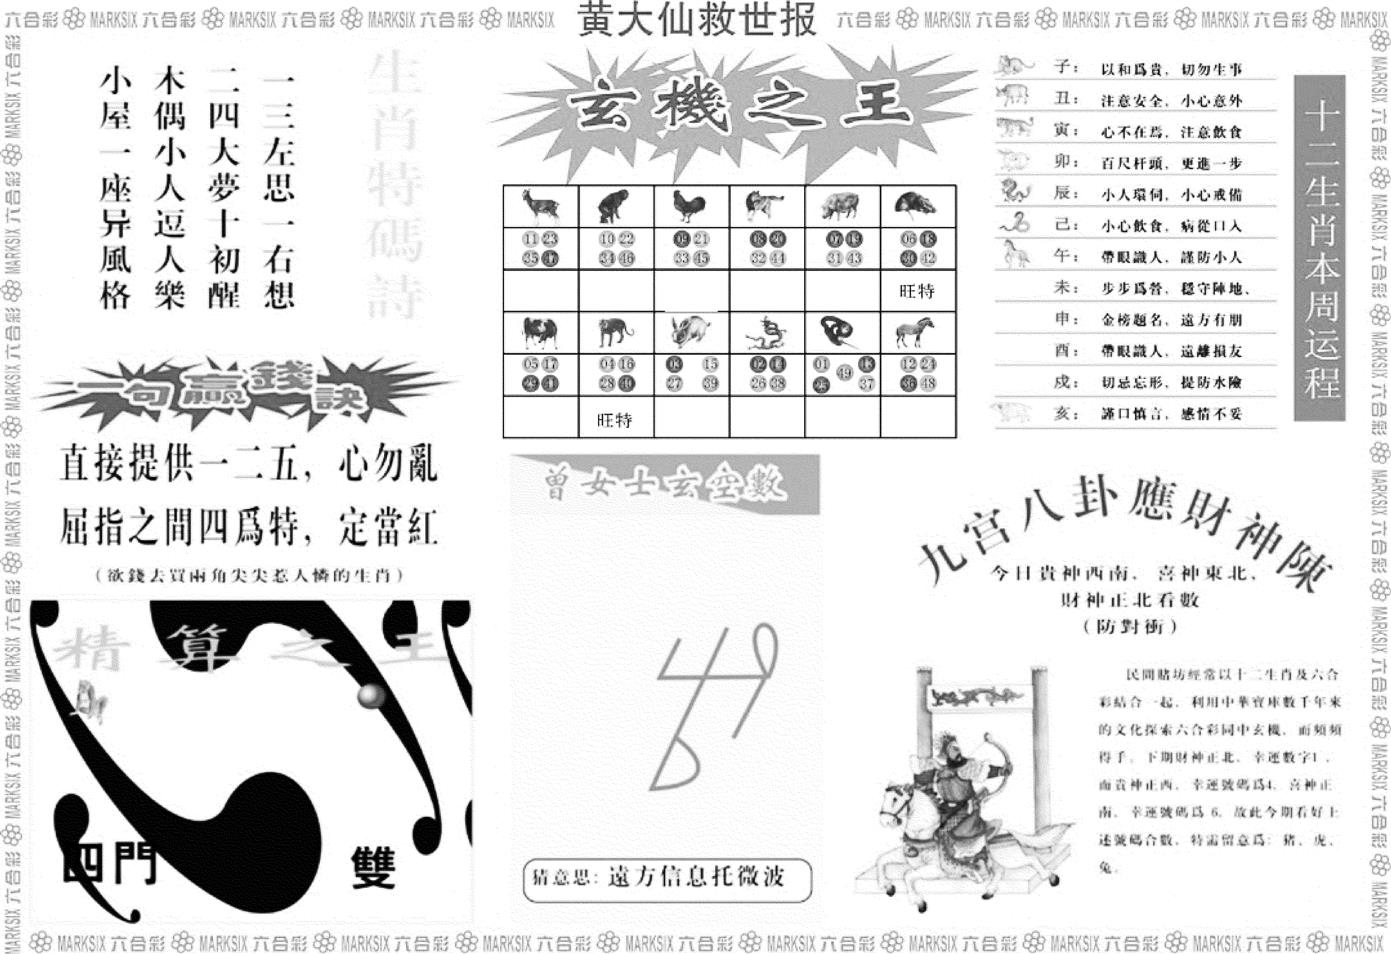 黄大仙救世报
MARKSIX 六合彩
生肖特碼詩
一三左思一右想
二四大夢十初醒
木偶小人逗人樂
小屋一座异風格
一句贏錢訣
直接提供一二五，心勿亂
屈指之間四爲特，定當紅
（欲錢去買兩角尖尖惹人憐的生肖）
精算之王
四門 雙
玄機之王
11 23 10 22 09 21 08 20 07 19 06 18
35 47 34 46 33 45 32 44 31 43 30 42
旺特
05 17 04 16 03 15 02 14 01 13 12 24
29 41 28 40 27 39 26 38 25 49 37 36 48
旺特
曾女士玄空數
猜意思：遠方信息托微波
十二生肖本周运程
子：以和爲貴，切勿生事
丑：注意安全，小心意外
寅：心不在焉，注意飲食
卯：百尺杆頭，更進一步
辰：小人環伺，小心戒備
己：小心飲食，病從口入
午：帶眼識人，謹防小人
未：步步爲營，穩守陣地、
申：金榜題名，遠方有朋
酉：帶眼識人，遠離損友
戍：切忌忘形，提防水險
亥：謹口慎言，感情不妥
九宮八卦應財神陳
今日貴神西南，喜神東北，
財神正北看數
（防對衝）
民間賭坊經常以十二生肖及六合
彩結合一起，利用中華寶庫數千年來
的文化探索六合彩同中玄機，而頻頻
得手，下期財神正北，幸運數字1，
而貴神正西，幸運號碼爲4，喜神正
南，幸運號碼爲 6，故此今期看好上
述號碼合數，特需留意爲：猪、虎、
兔。